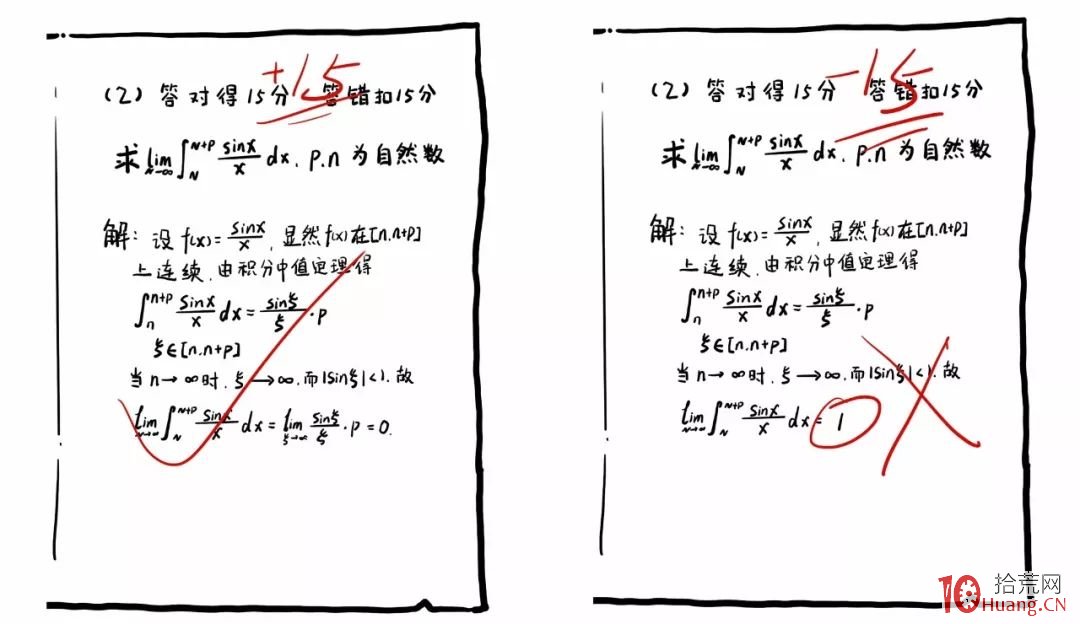 (2) 答对得15分 答错扣15分
+15
求 lim N→∞ ∫_N^{N+P} sinx/x dx. P.n 为自然数
解: 设 f(x)= sinx/x, 显然 f(x) 在[n.n+p]
上连续.由积分中值定理得
∫_n^{n+p} sinx/x dx = sinξ/ξ ·p
ξ∈[n.n+p]
当 n→∞时.ξ→∞.而|sinξ|<1.故
lim N→∞ ∫_N^{N+P} sinx/x dx = lim ξ→∞ sinξ/ξ ·p =0.
(2) 答对得15分 答错扣15分
-15
求 lim N→∞ ∫_N^{N+P} sinx/x dx. P.n 为自然数
解: 设 f(x)= sinx/x, 显然 f(x) 在[n.n+p]
上连续.由积分中值定理得
∫_n^{n+p} sinx/x dx = sinξ/ξ ·p
ξ∈[n.n+p]
当 n→∞时.ξ→∞.而|sinξ|<1.故
lim N→∞ ∫_N^{N+P} sinx/x dx = 1
10 拾荒网
Huang.CN